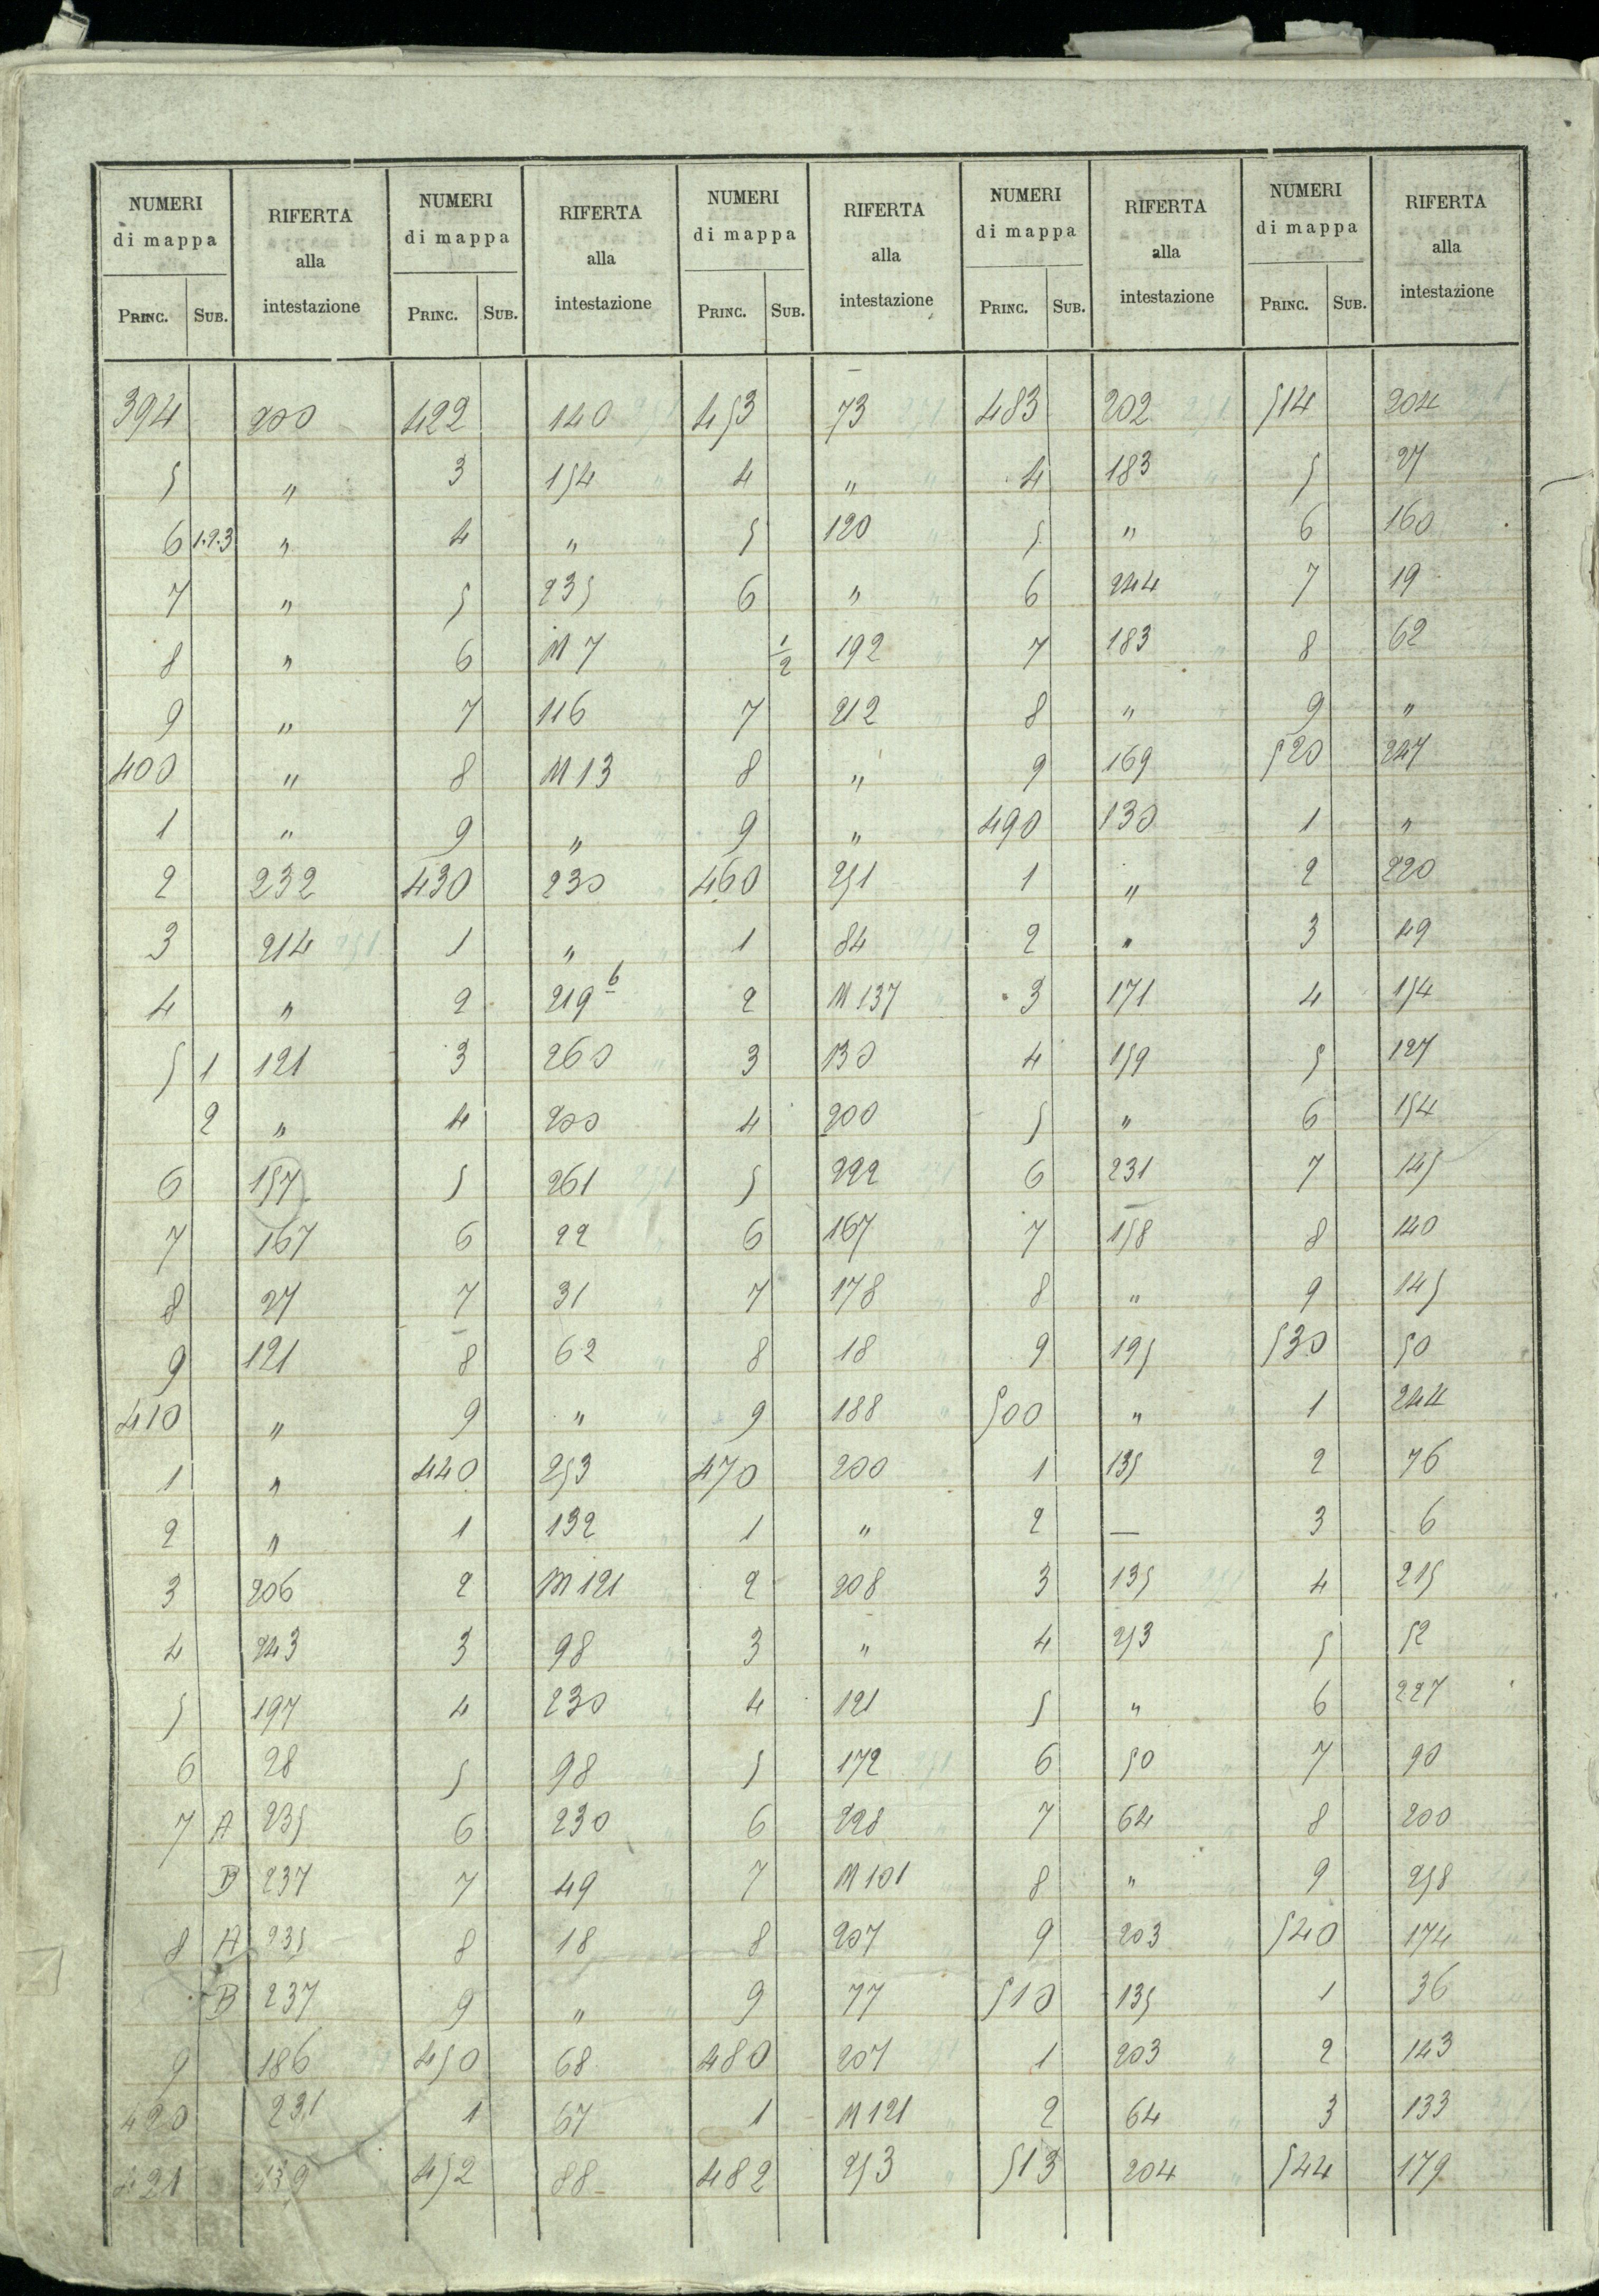 NUMERI di mappa RIFERTA alla intestazione NUMERI di mappa RIFERTA alla intestazione NUMERI di mappa RIFERTA alla intestazione NUMERI di mappa RIFERTA alla intestazione NUMERI di mappa RIFERTA alla intestazione
PRINC. SUB. PRINC. SUB. PRINC. SUB. PRINC. SUB. PRINC. SUB.
394 200 422 140 453 73 483 202 514 204
5 " 3 154 4 " 4 183 5 27
6 1.2.3 " 4 " 5 120 5 " 6 160
7 " 5 235 6 " 6 244 7 19
8 " 6 M 7 1/2 192 7 183 8 62
9 " 7 116 7 212 8 " 9 "
400 " 8 M 13 8 " 9 169 520 247
1 " 9 " 9 " 490 130 1 "
2 232 430 230 460 251 1 " 2 220
3 214 1 " 1 84 2 " 3 49
4 " 2 219 b 2 M 137 3 171 4 154
5 1 121 3 260 3 130 4 159 5 127
2 " 4 200 4 200 5 " 6 154
6 157 5 261 5 222 6 231 7 145
7 167 6 22 6 167 7 158 8 140
8 27 7 31 7 178 8 " 9 145
9 121 8 62 8 18 9 195 530 50
410 " 9 " 9 188 500 " 1 244
1 " 440 253 470 200 1 135 2 76
2 " 1 132 1 " 2 — 3 6
3 206 2 M 121 2 208 3 135 4 215
4 243 3 98 3 " 4 253 5 52
5 197 4 230 4 121 5 " 6 227
6 28 5 98 5 172 6 50 7 90
7 A 235 6 230 6 228 7 64 8 200
B 237 7 49 7 M 101 8 " 9 258
8 A 235 8 18 8 207 9 203 540 174
B 237 9 " 9 77 510 135 1 36
9 186 450 68 480 207 1 203 2 143
420 231 1 67 1 M 121 2 64 3 133
421 452 88 482 253 513 204 544 179